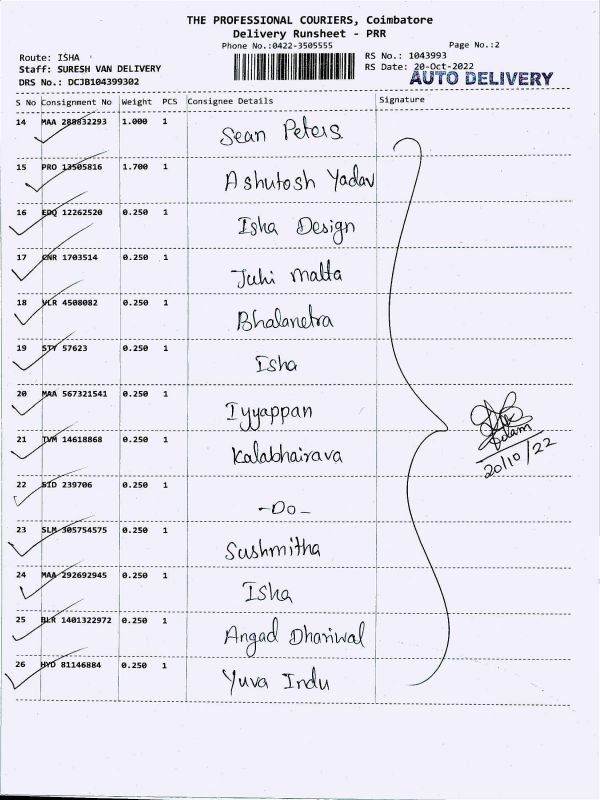 THE PROFESSIONAL COURIERS, Coimbatore
Delivery Runsheet - PRR
Phone No.:0422-3505555
Page No.:2
Route: ISHA
RS No.: 1043993
Staff: SURESH VAN DELIVERY
RS Date: 20-Oct-2022
DRS No.: DCJB104399302
AUTO DELIVERY
S No Consignment No Weight PCS Consignee Details Signature
14 MAA 288832293 1.000 1 Sean Peters
15 PRO 13505816 1.700 1 Ashutosh Yadav
16 EDQ 12262520 0.250 1 Isha Design
17 CNR 1703514 0.250 1 Juhi Malta
18 VLR 4508082 0.250 1 Bhalanetra
19 STY 57623 0.250 1 Isha
20 MAA 567321541 0.250 1 Iyyappan
21 TVM 14618868 0.250 1 Kalabhairava
22 SID 239706 0.250 1 -Do-
23 SLM 305754575 0.250 1 Sushmitha
24 MAA 292692945 0.250 1 Isha
25 BLR 1401322972 0.250 1 Angad Dhariwal
26 HYD 81146884 0.250 1 Yuva Indu
20/10/22